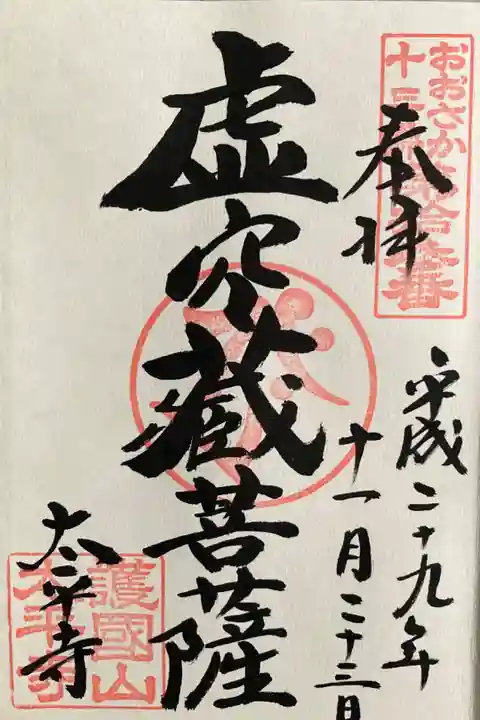 おおさか
十三佛第拾三番
奉拝
平成二十九年
十一月二十三日
虚空藏菩薩
太平寺
護國山
太平寺